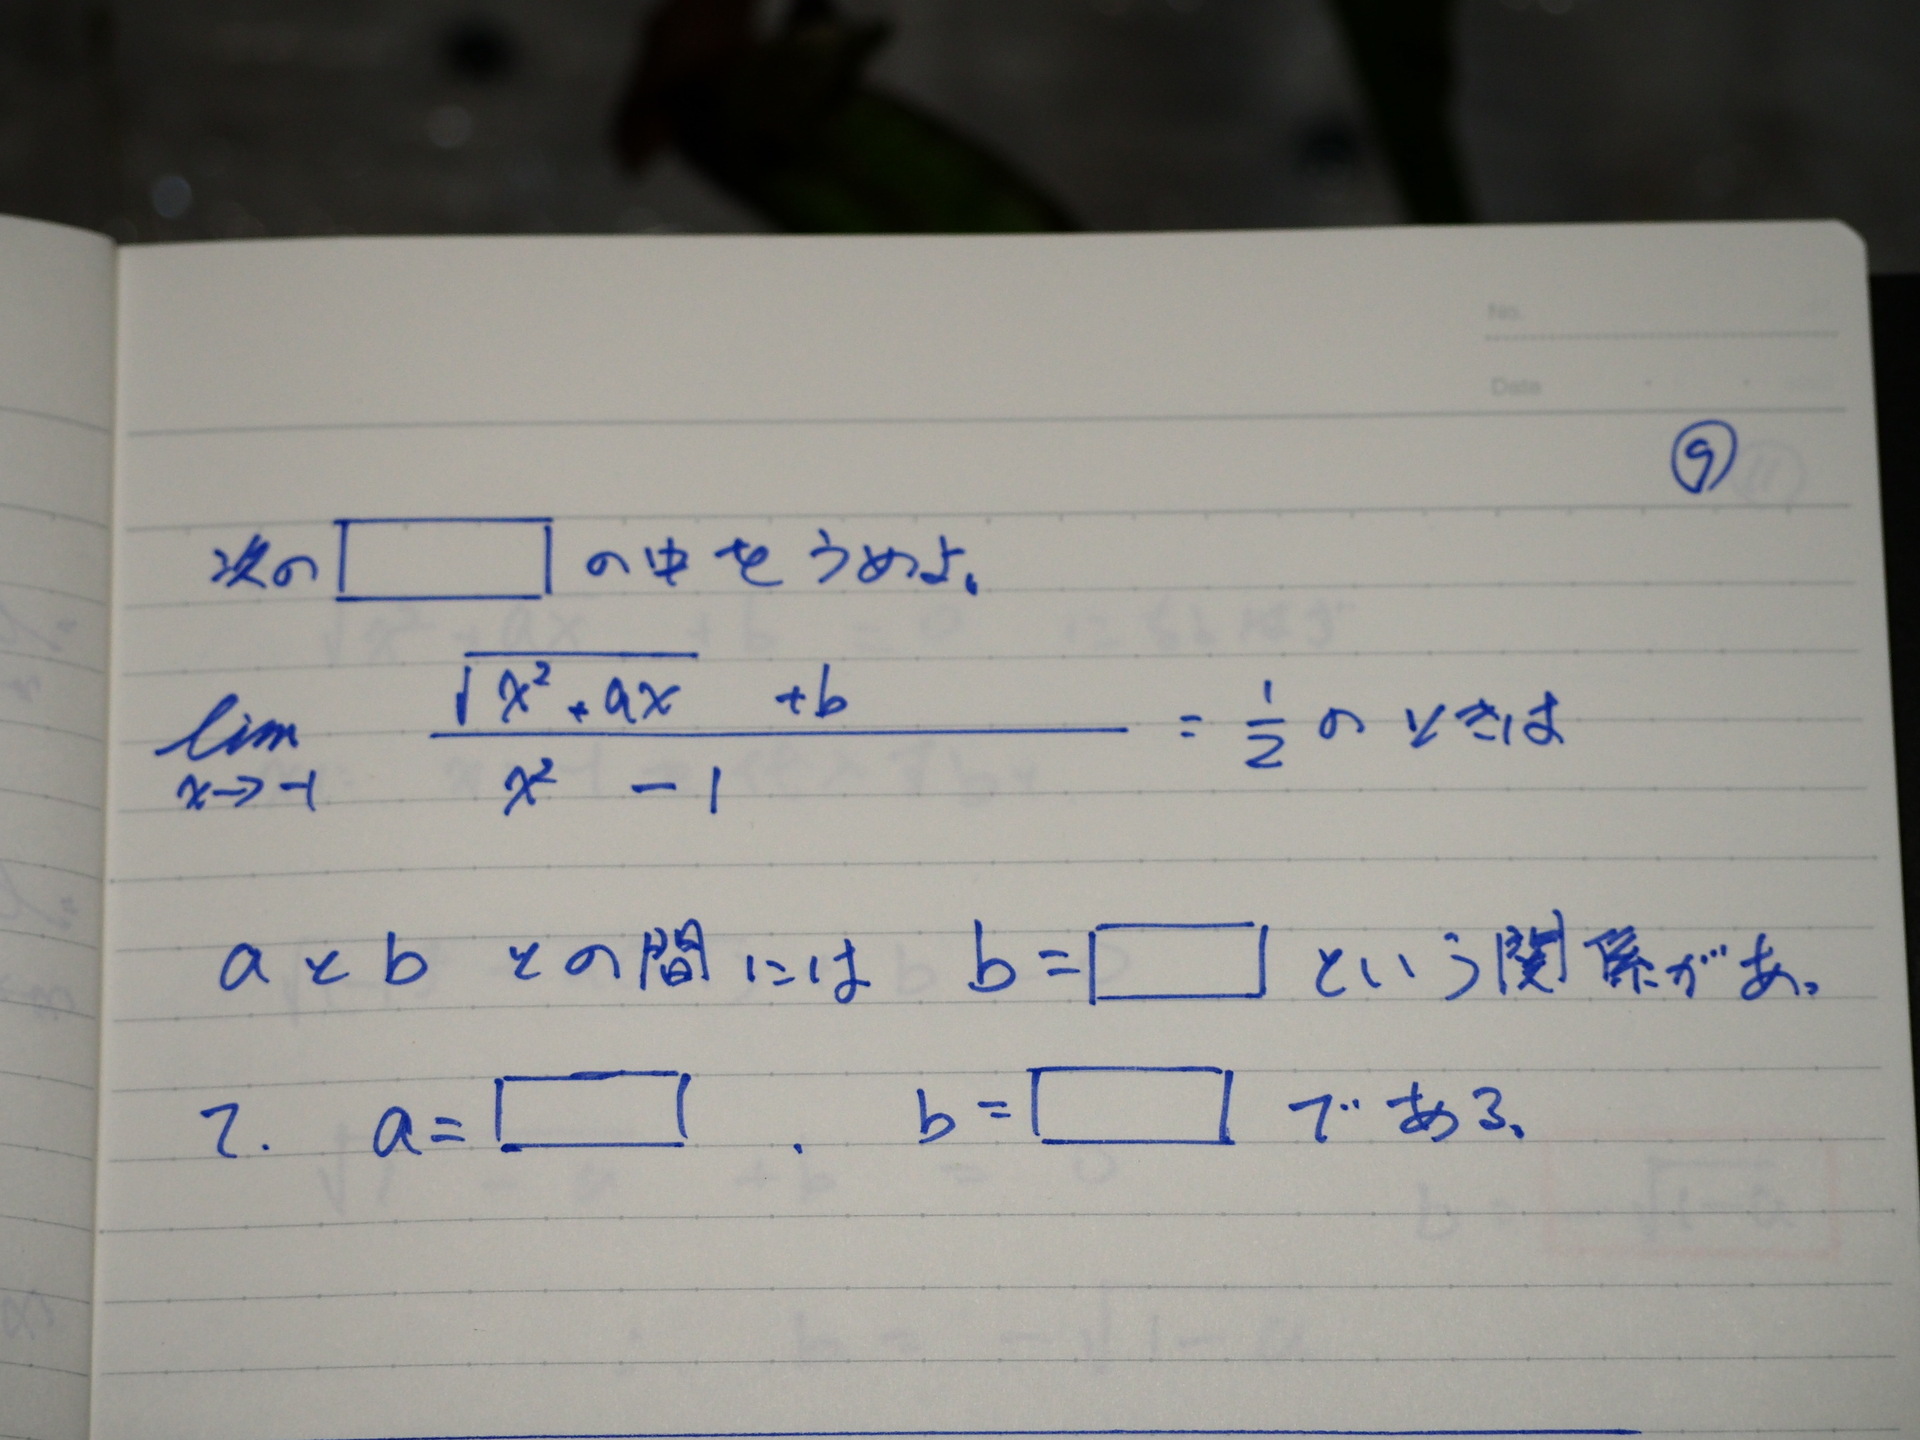 No.
Date
⑨
次の□の中をうめよ。
lim x→-1 (√(x²+ax) +b)/(x² - 1) = 1/2 のときは
aとb との間には b=□という関係があっ
て. a=□ . b=□である。